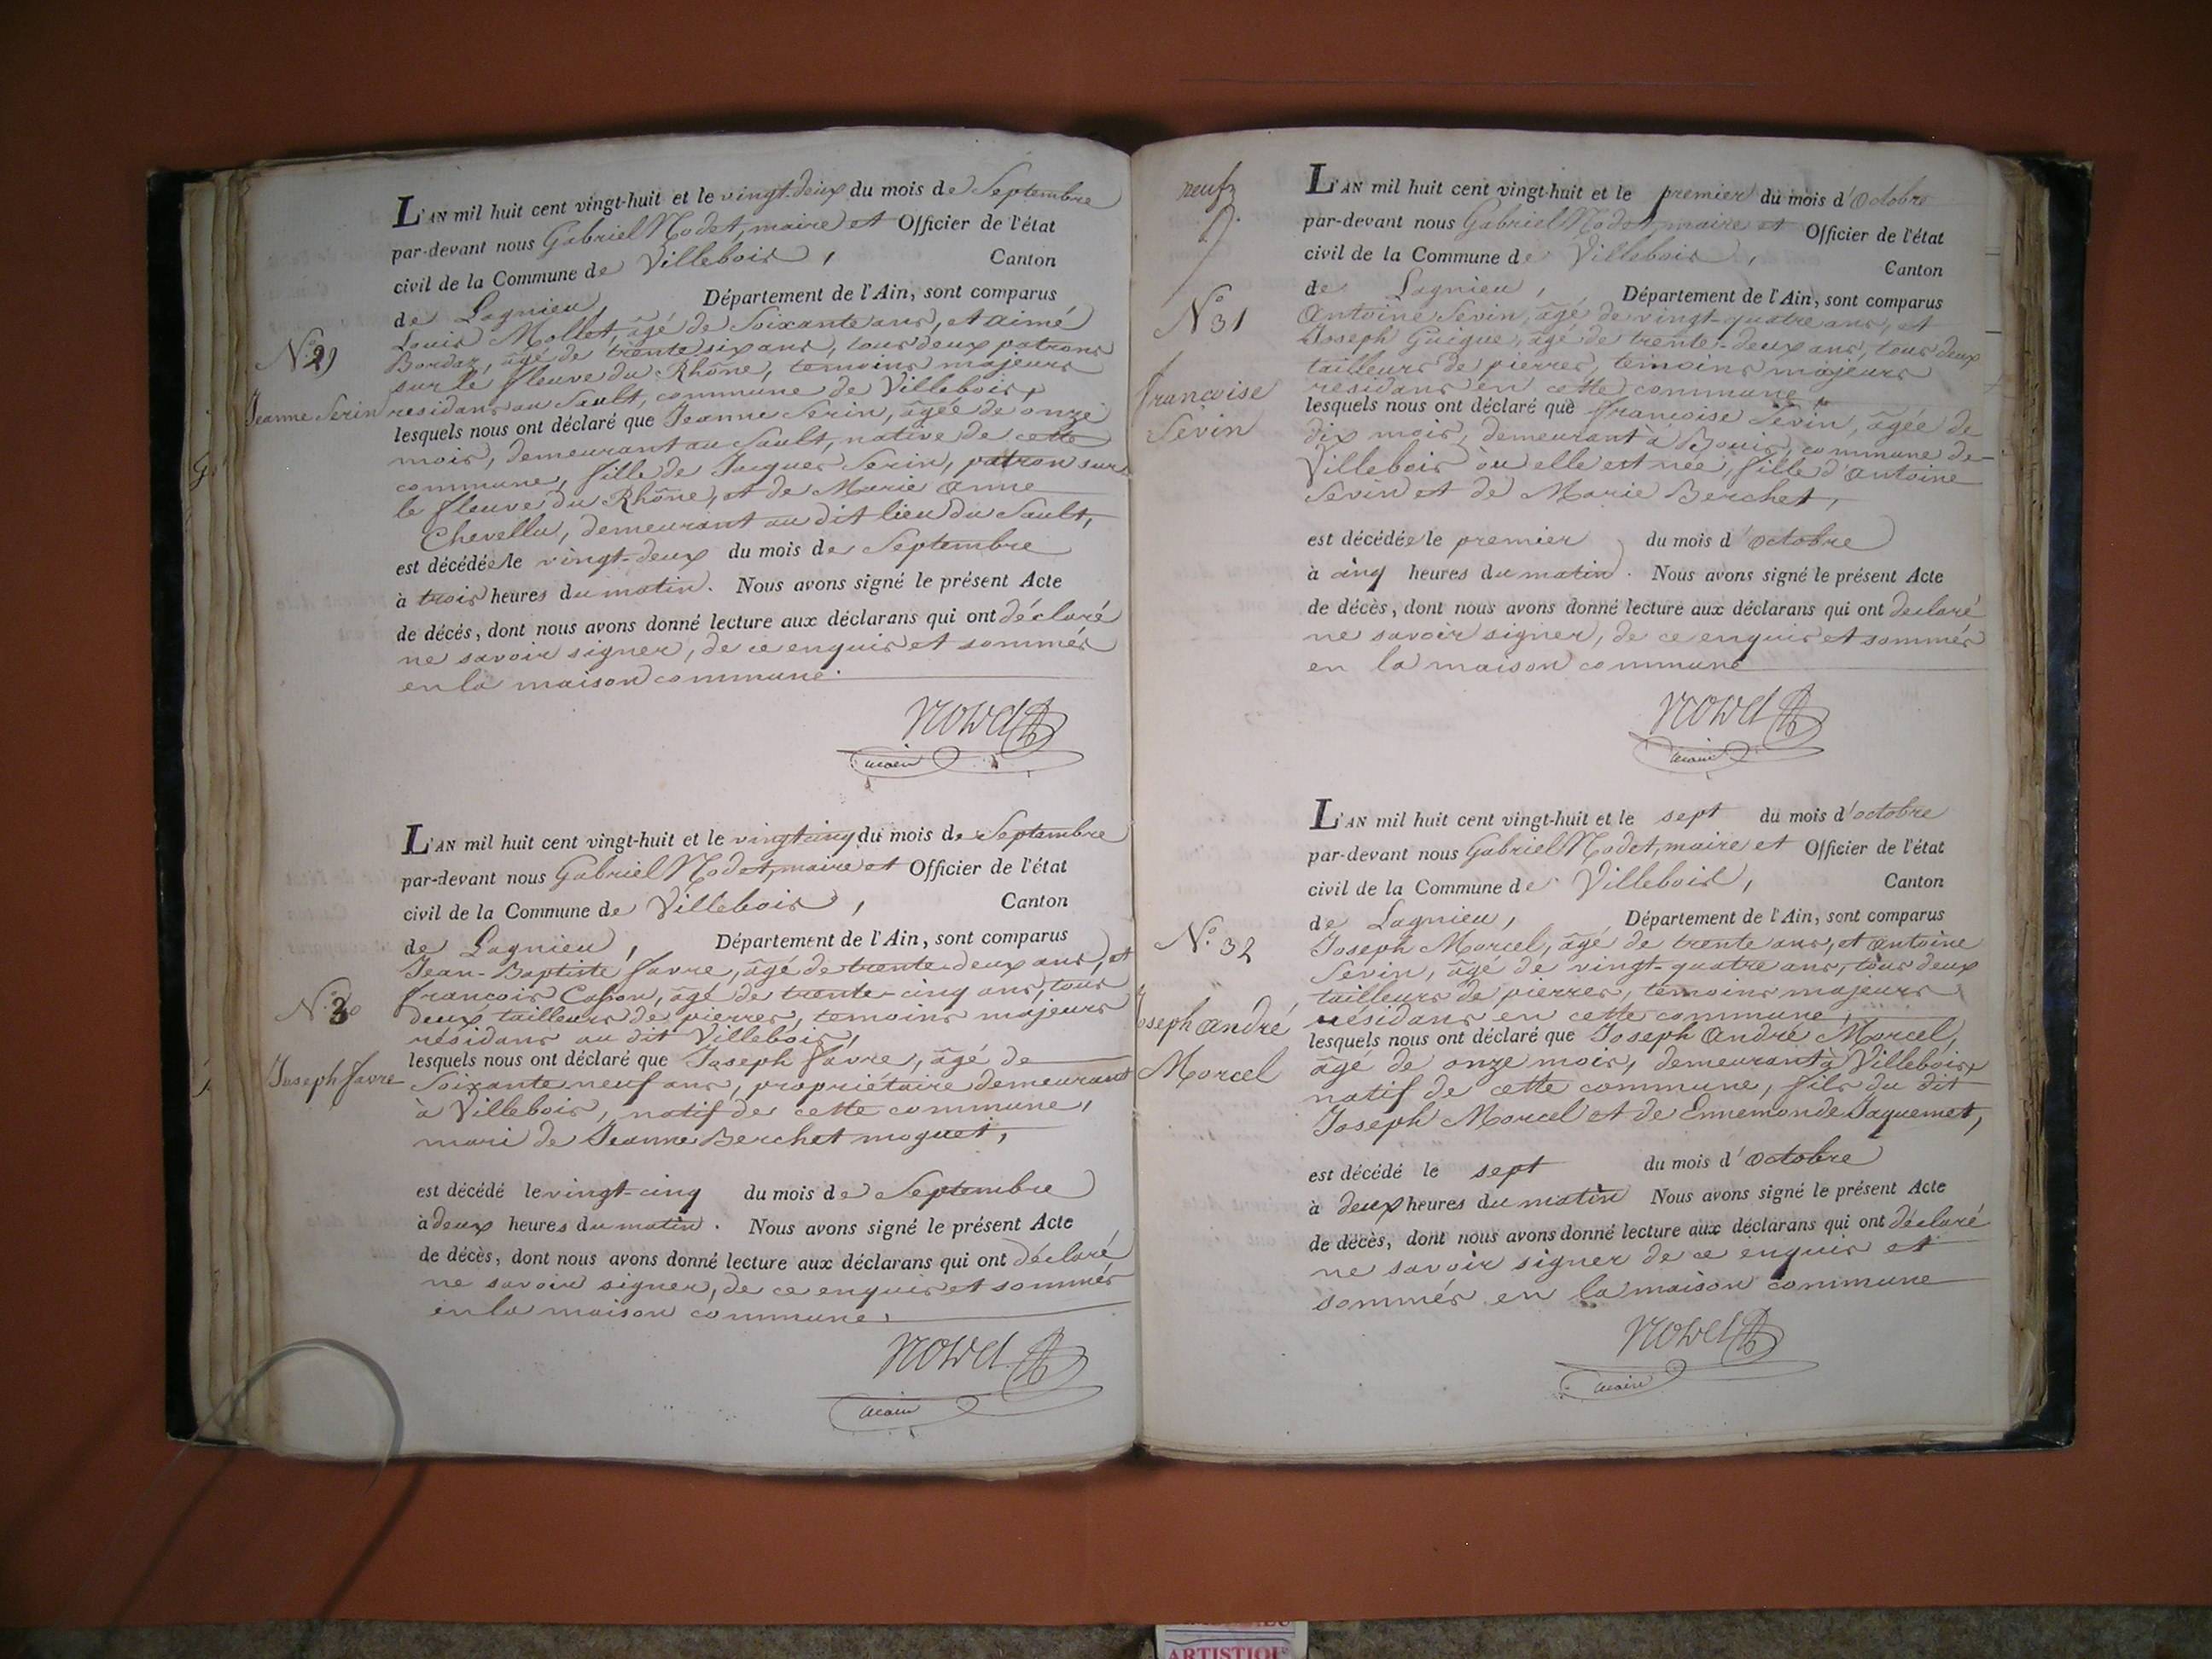 L'AN mil huit cent vingt-huit et le vingt-deux du mois de Septembre
par-devant nous Gabriel Nodet, maire et Officier de l'état
civil de la Commune de Villebois, Canton
de Lagnieu, Département de l'Ain, sont comparus
Louis Mollet, âgé de Soixante ans, et aimé
Bordaz, âgé de trente six ans, tous deux patrons
sur le fleuve du Rhône, temoins majeurs
residans au Sault, commune de Villebois,
lesquels nous ont déclaré que Jeanne Serin, âgée de onze
mois, demeurant au Sault, native de cette
commune, fille de Jacques Serin, patron sur
le fleuve du Rhône, et de Marie Anne
Chevellu, demeurant au dit lieu du Sault,
est décédée le vingt-deux du mois de Septembre
à trois heures du matin. Nous avons signé le présent Acte
de décés, dont nous avons donné lecture aux déclarans qui ont déclaré
ne savoir signer, de ce enquis et sommés
en la maison commune.
Nodet
maire
N.º 29
Jeanne Serin
L'AN mil huit cent vingt-huit et le vingt cinq du mois de Septembre
par-devant nous Gabriel Nodet, maire et Officier de l'état
civil de la Commune de Villebois, Canton
de Lagnieu, Département de l'Ain, sont comparus
Jean-Baptiste favre, âgé de trente deux ans, et
francois Cason, âgé de trente-cinq ans, tous
deux tailleurs de pierres, temoins majeurs
résidans au dit Villebois,
lesquels nous ont déclaré que Joseph favre, âgé de
Soixante neuf ans, propriétaire demeurant
à Villebois, natif de cette commune,
mari de Jeanne Berchet moguet,
est décédé le vingt-cinq du mois de Septembre
à deux heures du matin. Nous avons signé le présent Acte
de décès, dont nous avons donné lecture aux déclarans qui ont déclaré
ne savoir signer, de ce enquis et sommés
en la maison commune.
Nodet
maire
N.º 30
Joseph favre
neuf
N.º 31
francoise
Sevin
L'AN mil huit cent vingt-huit et le premier du mois d'Octobre
par-devant nous Gabriel Nodet, maire et Officier de l'état
civil de la Commune de Villebois, Canton
de Lagnieu, Département de l'Ain, sont comparus
Antoine Sevin, âgé de vingt-quatre ans, et
Joseph Guigue, âgé de trente-deux ans, tous deux
tailleurs de pierres, temoins majeurs
residans en cette commune
lesquels nous ont déclaré que francoise Sevin, âgée de
dix mois, demeurant à Bouis, commune de
Villebois où elle est née, fille d'antoine
Sevin et de Marie Berchet,
est décédée le premier du mois d'octobre
à cinq heures du matin. Nous avons signé le présent Acte
de décès, dont nous avons donné lecture aux déclarans qui ont declaré
ne savoir signer, de ce enquis et sommés
en la maison commune
Nodet
maire
L'AN mil huit cent vingt-huit et le sept du mois d'octobre
par-devant nous Gabriel Nodet, maire et Officier de l'état
civil de la Commune de Villebois, Canton
de Lagnieu, Département de l'Ain, sont comparus
Joseph Morcel, âgé de trente ans, et antoine
Sevin, âgé de vingt-quatre ans, tous deux
tailleurs de pierres, temoins majeurs
résidans en cette commune,
lesquels nous ont déclaré que Joseph André Morcel,
âgé de onze mois, demeurant à Villebois,
natif de cette commune, fils du dit
Joseph Morcel et de Ennemonde Jaquemet,
est décédé le sept du mois d'octobre
à deux heures du matin Nous avons signé le présent Acte
de décès, dont nous avons donné lecture aux déclarans qui ont déclaré
ne savoir signer de ce enquis et
sommés en la maison commune
Nodet
maire
N.º 32
Joseph André
Morcel
ARTISTIQ